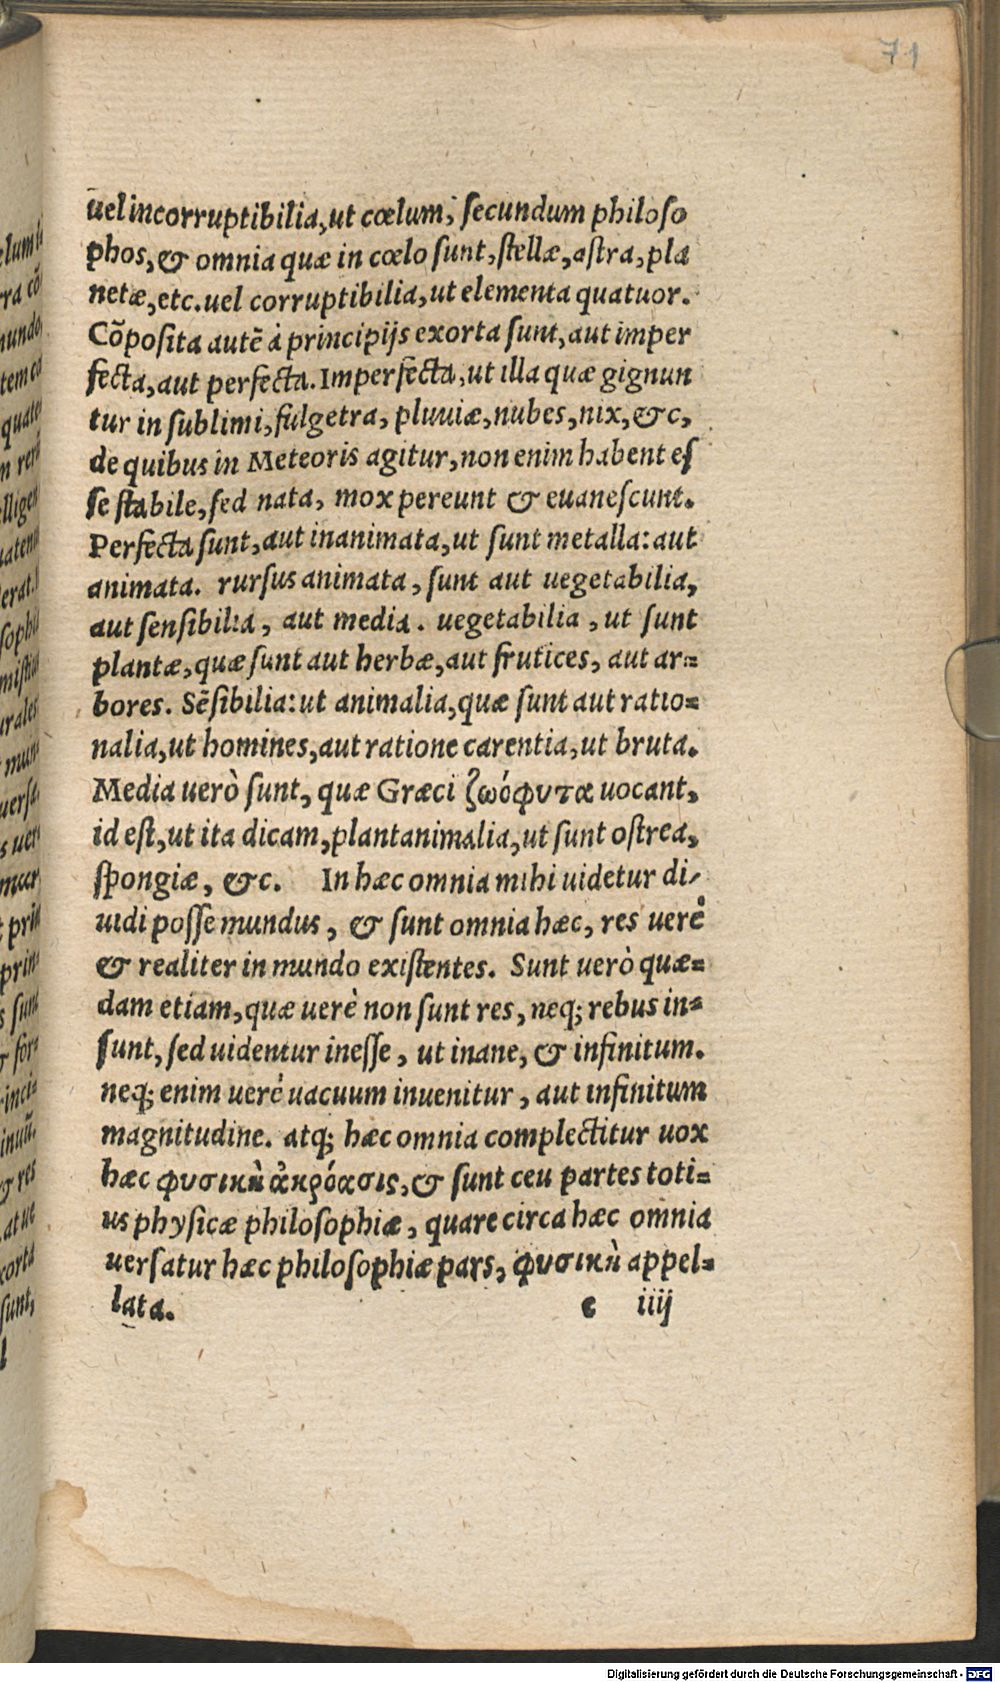 71
uel incorruptibilia, ut cœlum, ſecundum philoſo
phos, & omnia quæ in cœlo ſunt, ſtellæ, aſtra, pla
netæ, etc. uel corruptibilia, ut elementa quatuor.
Cõpoſita autẽ à principijs exorta ſunt, aut imper
fecta, aut perfecta. Imperfecta, ut illa quæ gignun
tur in ſublimi, fulgetra, pluuiæ, nubes, nix, &c,
de quibus in Meteoris agitur, non enim habent eſ
ſe ſtabile, ſed nata, mox pereunt & euaneſcunt.
Perfecta ſunt, aut inanimata, ut ſunt metalla: aut
animata. rurſus animata, ſunt aut uegetabilia,
aut ſenſibilia, aut media. uegetabilia, ut ſunt
plantæ, quæ ſunt aut herbæ, aut frutices, aut ar-
bores. Sẽſibilia: ut animalia, quæ ſunt aut ratio-
nalia, ut homines, aut ratione carentia, ut bruta.
Media uerò ſunt, quæ Græci ζωόφυτα uocant,
id eſt, ut ita dicam, plantanimalia, ut ſunt oſtrea,
ſpongiæ, &c. In hæc omnia mihi uidetur di-
uidi poſſe mundus, & ſunt omnia hæc, res uerè
& realiter in mundo exiſtentes. Sunt uerò quæ-
dam etiam, quæ uerè non ſunt res, neq; rebus in-
ſunt, ſed uidentur ineſſe, ut inane, & infinitum.
neq; enim uerè uacuum inuenitur, aut infinitum
magnitudine. atq; hæc omnia complectitur uox
hæc φυσικὴ ἀκρόασις, & ſunt ceu partes toti-
us phyſicæ philoſophiæ, quare circa hæc omnia
uerſatur hæc philoſophiæ pars, φυσικὴ appel-
lata.
e iiij
Digitalisierung gefördert durch die Deutsche Forschungsgemeinschaft - DFG